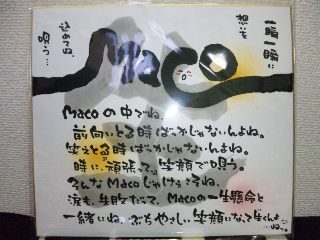 一瞬一瞬に
想いを
込めてね、
唄う…
Maco
Macoの中でね、
前向いとる時ばっかじゃないんよね。
笑えとる時ばっかじゃないんよね。
時に、頑張って 笑顔で唄う。
そんなMacoじゃけぇね。
涙も、失敗だって、Macoの一生懸命と
一緒にね、ぶちやさしい笑顔になって